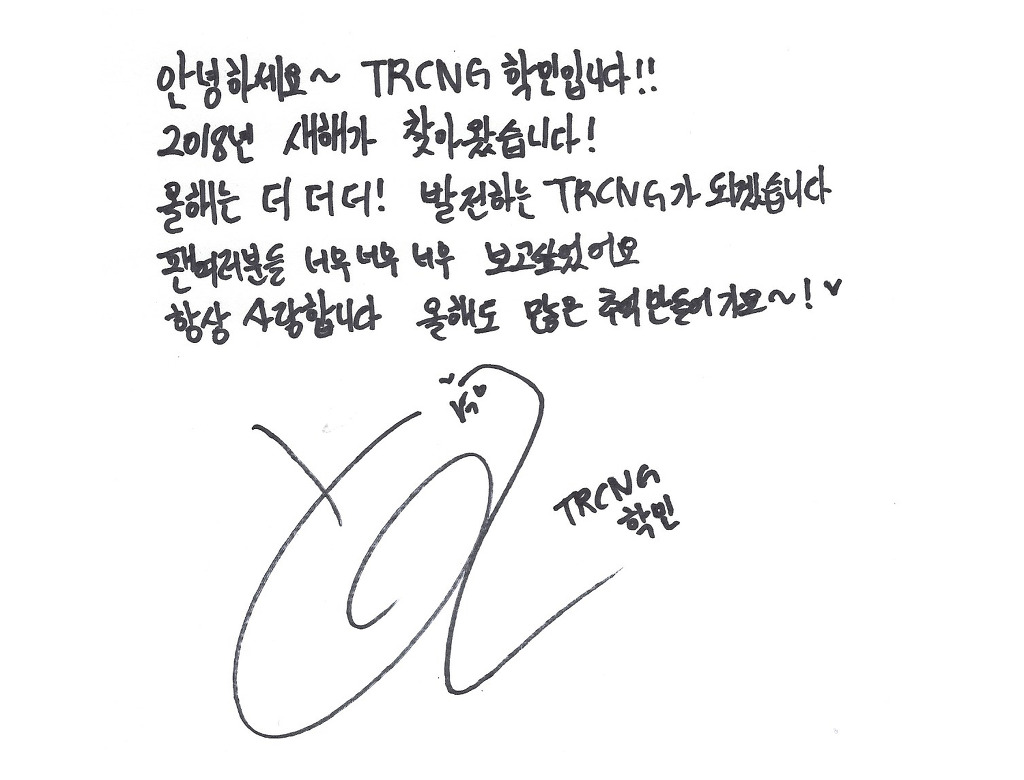 안녕하세요~ TRCNG 학민입니다!!
2018년 새해가 찾아왔습니다!
올해는 더 더 더! 발전하는 TRCNG가 되겠습니다
팬여러분들 너무 너무 너무 보고싶었어요
항상 사랑합니다 올해도 많은 추억 만들어 가요~! ♥
TRCNG
학민